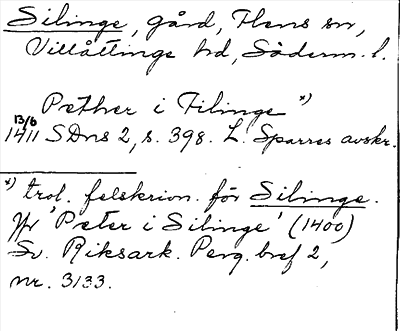 Silinge, gård, Flens sn,
Villåttinge hd, Söderm. l.
Pether i Filinge x)
13/6
1411 SDns 2, s. 398. L. Sparres avskr.
x) trol. felskrivn. för Silinge.
Jfr 'Peter i Silinge' (1400)
Sv. Riksark. Perg. bref 2,
nr. 3133.